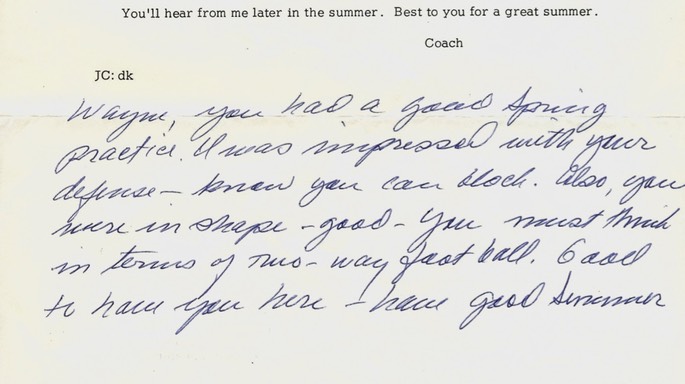 You'll hear from me later in the summer. Best to you for a great summer.
Coach
JC: dk
Wayne, you had a good Spring
practice. I was impressed with your
defense – know you can block. Also, you
were in shape – good – You must think
in terms of two-way foot ball. Good
to have you here – have good Summer